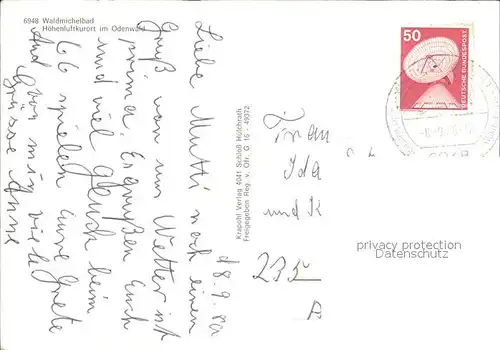 6948 Waldmichelbad
Höhenluftkurort im Odenwald
d 8.9.80
Liebe Mutti noch einen
Gruß von uns Wetter ist
prima. Es grüßen Euch
und viel Glück beim
66 spielen Eure Grete
Auch von mir viele
Grüsse Anne
Krapohl Verlag 4041 Schloß Hülchrath
Freigegeben Reg. v. Obf. G 16 - 49372
50
DEUTSCHE BUNDESPOST
Frau
Ida
und K
235
privacy protection
Datenschutz